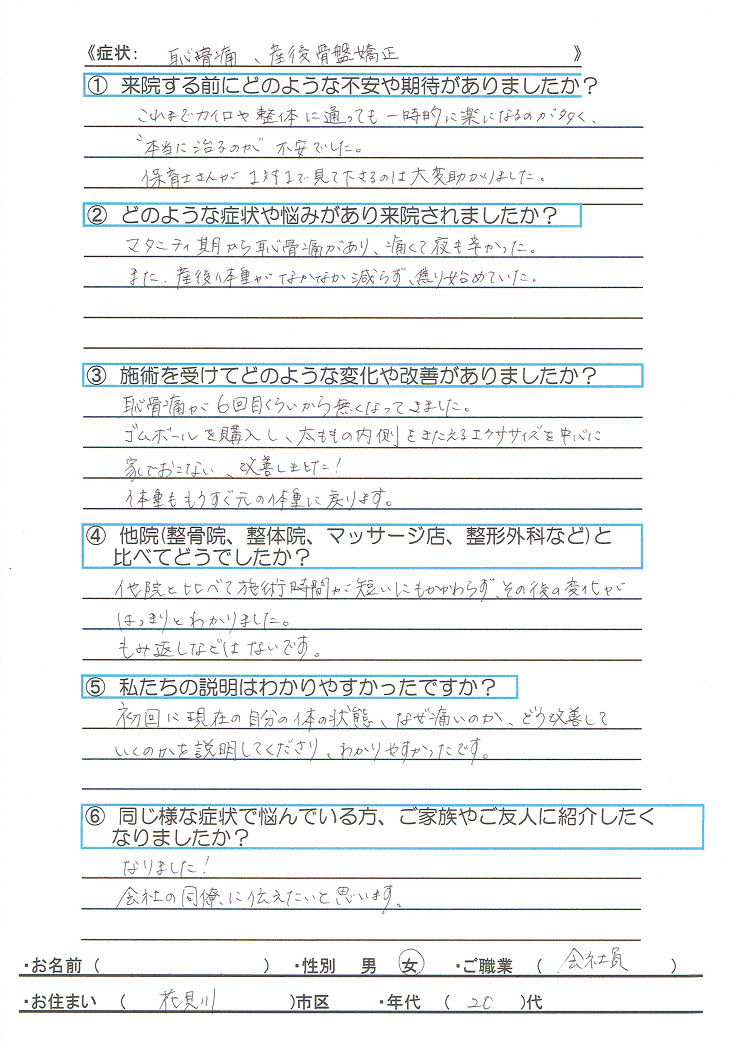 《症状： 恥骨痛、産後骨盤矯正 》
① 来院する前にどのような不安や期待がありましたか？
これまでカイロや整体に通っても一時的に楽になるのが多く、
"本当に治るのか" 不安でした。
保育士さんが1対1で見て下さるのは大変助かりました。
② どのような症状や悩みがあり来院されましたか？
マタニティ期から恥骨痛があり、痛くて夜も辛かった。
また、産後体重がなかなか減らず、焦り始めていた。
③ 施術を受けてどのような変化や改善がありましたか？
恥骨痛が6回目くらいから無くなってきました。
ゴムボールを購入し、太ももの内側をきたえるエクササイズを中心に
家でおこない、改善しました！
体重ももうすぐ元の体重に戻ります。
④ 他院(整骨院、整体院、マッサージ店、整形外科など)と
比べてどうでしたか？
他院と比べて施術時間が短いにもかかわらず、その後の変化が
はっきりとわかりました。
もみ返しなどはないです。
⑤ 私たちの説明はわかりやすかったですか？
初回に現在の自分の体の状態、なぜ痛いのか、どう改善して
いくのかを説明してくださり、わかりやすかったです。
⑥ 同じ様な症状で悩んでいる方、ご家族やご友人に紹介したく
なりましたか？
なりました！
会社の同僚に伝えたいと思います。
・お名前（ ） ・性別 男 女 ・ご職業（ 会社員 ）
・お住まい（ 花見川 ）市区 ・年代（ 20 ）代